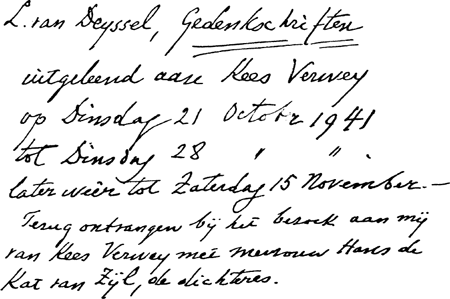 L. van Deyssel, Gedenkschriften
uitgeleend aan Kees Verwey
op Dinsdag 21 Octobr 1941
tot Dinsdag 28 " ".
later weêr tot Zaterdag 15 November.—
Terug ontvangen bij het bezoek aan mij
van Kees Verwey met mevrouw Hans de
Kat van Zijl, de dichteres.